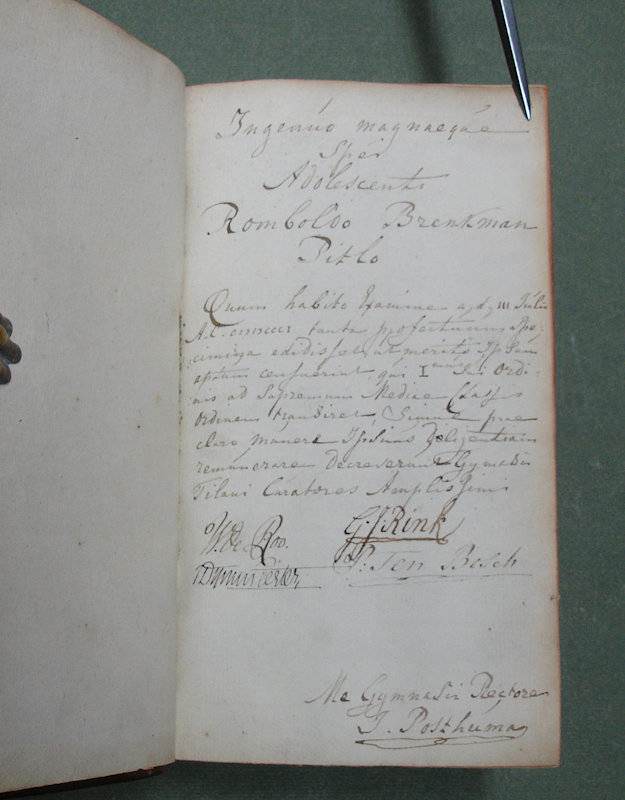 Ingenúo magnaeqúe
Spei
Adolescenti
Romboldo Brenkman
Pitlo
Quum habito Examine a, d, III Júlii
tanta profectuum Spe,
cimina edidisset, ut merito Ipsum
aptum censuerint qui I ordi,
nis ad Supremum Mediae Classis
ordinem transiret, Simul prae
claro munere Ipsius Diligentiam
remúnerare decreverunt Gymnasii
Tilani Curatores Amplissimi
W. de Roo. G. J. Rink
P: Ten Bosch
Me Gymnasii Rectore
J. Posthúma